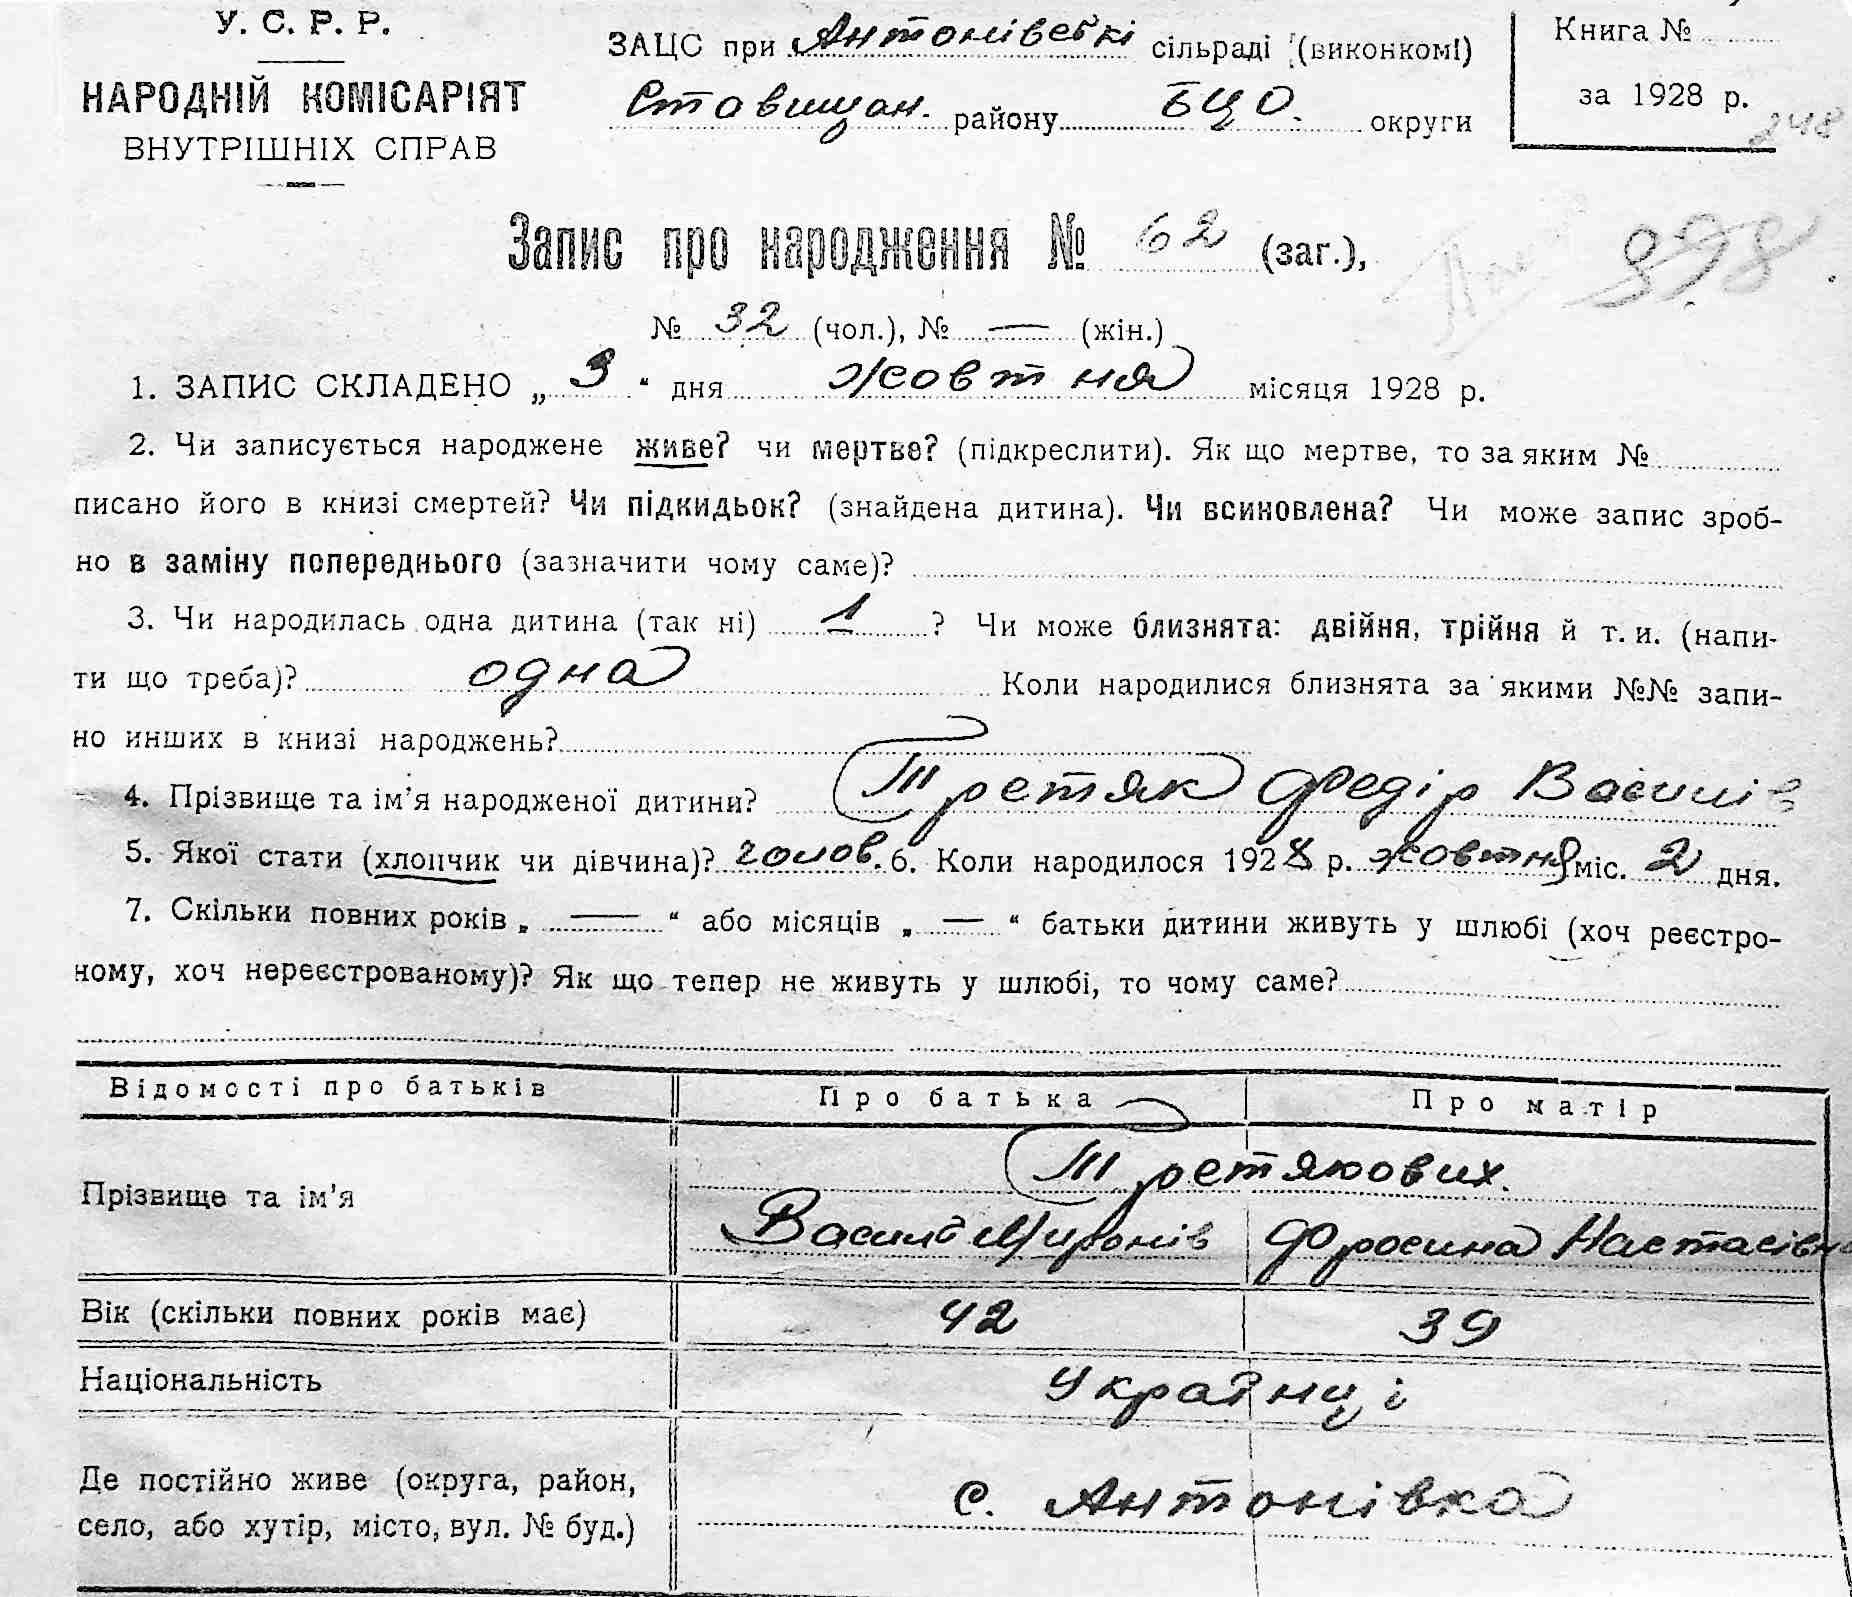 У. С. Р. Р.
НАРОДНІЙ КОМІСАРІЯТ
ВНУТРІШНІХ СПРАВ
ЗАЦС при Антонівські сільраді (виконкомі)
Ставищан. району БЦО. округи
Книга №
за 1928 р.
248
Запис про народження № 62 (заг.),
898
№ 32 (чол.), № — (жін.)
1. ЗАПИС СКЛАДЕНО „ 3 “ дня жовтня місяця 1928 р.
2. Чи записується народжене живе? чи мертве? (підкреслити). Як що мертве, то за яким №
писано його в книзі смертей? Чи підкидьок? (знайдена дитина). Чи всиновлена? Чи може запис зроб-
но в заміну попереднього (зазначити чому саме)?
3. Чи народилась одна дитина (так ні) 1 ? Чи може близнята: двійня, трійня й т. и. (напи-
ти що треба)? одна Коли народилися близнята за якими №№ запи-
но инших в книзі народжень?
4. Прізвище та ім’я народженої дитини? Третяк Федір Васил́ів
5. Якої стати (хлопчик чи дівчина)? чолов. 6. Коли народилося 1928 р. жовтня міс. 2 дня.
7. Скільки повних років „ — “ або місяців „ — “ батьки дитини живуть у шлюбі (хоч реєстро-
ному, хоч нереєстрованому)? Як що тепер не живуть у шлюбі, то чому саме?
Відомості про батьків Про батька Про матір
Третякових.
Прізвище та ім’я
Василь Миронів Фросина Настасівна
Вік (скільки повних років має) 42 39
Національність Українці
Де постійно живе (округа, район,
село, або хутір, місто, вул. № буд.) с. Антонівка